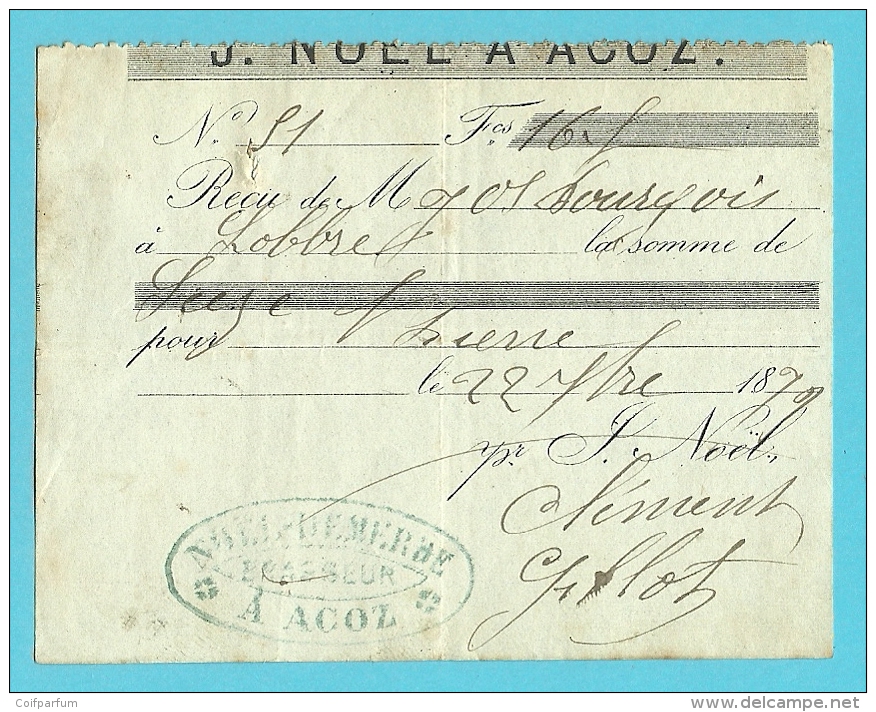 J. NOËL A ACOZ.
N.° 51 Fcs 16
Reçu de M Jos Bourgois
à Lobbes la somme de
Seize
pour bierre
le 22 7bre 1879
pr J. Noël,
Clément
Gillot
NOEL-DEMERBE
BRASSEUR
A ACOZ
Coifparfum
delcampe.net